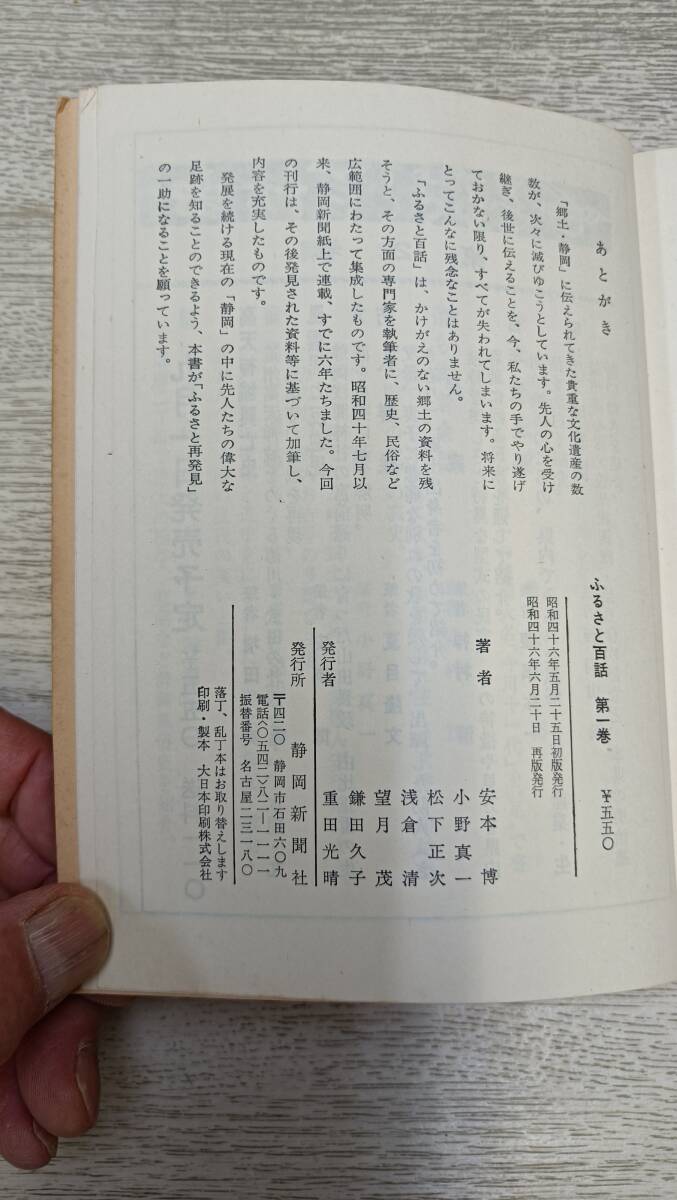 あとがき
「郷土・静岡」に伝えられてきた貴重な文化遺産の数
数が、次々に滅びゆこうとしています。先人の心を受け
継ぎ、後世に伝えることを、今、私たちの手でやり遂げ
ておかない限り、すべてが失われてしまいます。将来に
とってこんなに残念なことはありません。
「ふるさと百話」は、かけがえのない郷土の資料を残
そうと、その方面の専門家を執筆者に、歴史、民俗など
広範囲にわたって集成したものです。昭和四十年七月以
来、静岡新聞紙上で連載、すでに六年たちました。今回
の刊行は、その後発見された資料等に基づいて加筆し、
内容を充実したものです。
発展を続ける現在の「静岡」の中に先人たちの偉大な
足跡を知ることのできるよう、本書が「ふるさと再発見」
の一助になることを願っています。
ふるさと百話 第一巻 ¥五五〇
昭和四十六年五月二十五日初版発行
昭和四十六年六月二十日 再版発行
著者 安本博
小野真一
松下正次
浅倉清
望月茂
鎌田久子
発行者 重田光晴
発行所 静岡新聞社
〒四二〇 静岡市石田六〇九
電話〈〇五四二〉八二―一一一一
振替番号 名古屋二三一八〇
落丁、乱丁本はお取り替えします
印刷・製本 大日本印刷株式会社